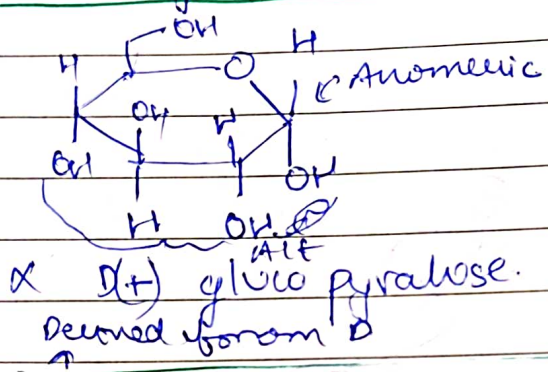 OH
H
O
H
Anomeric
OH
H
OH
OH
H
OH
Alt
α D(+) gluco pyralose.
Derived from D